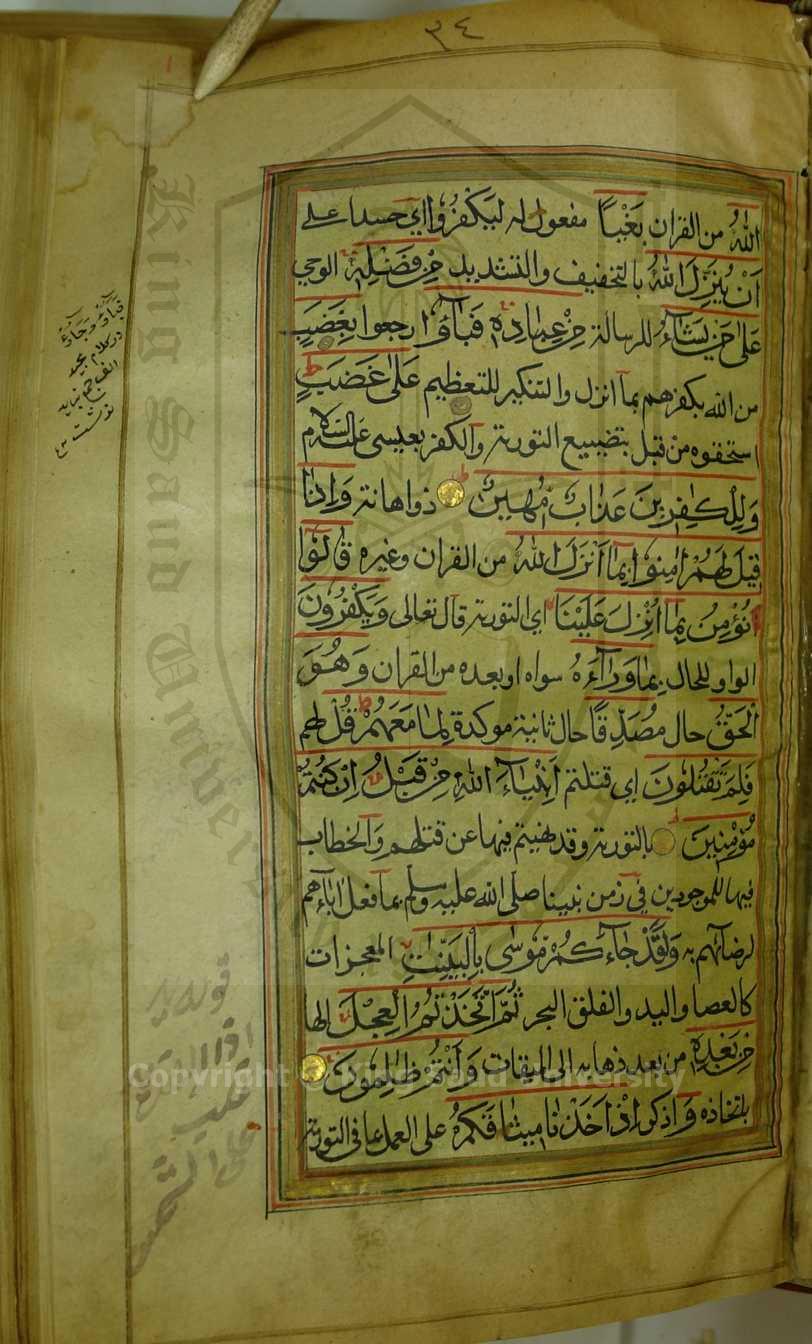 ٣٤
اللّٰهُ من القران بَغْيًا مفعول له ليَكْفُرُوا اي حسدا على
اَنْ يُنَزِّلَ اللّٰهُ بالتخفيف والتشديد مِنْ فَضْلِهٖ الوحي
عَلٰى مَنْ يَشَآءُ للرسالة مِنْ عِبَادِهٖ فَبَآءُوْ رجعوا بِغَضَبٍ
من الله بكفرهم بما انزل والتنكير للتعظيم عَلٰى غَضَبٍ
استحقوه من قبل بتضييع التورية والكفر بعيسى عليه السلام
وَلِلْكٰفِرِيْنَ عَذَابٌ مُّهِيْنٌ ذو اهانة وَاِذَا
قِيْلَ لَهُمْ اٰمِنُوْا بِمَآ اَنْزَلَ اللّٰهُ من القران وغيره قَالُوْا
نُؤْمِنُ بِمَآ اُنْزِلَ عَلَيْنَا اي التورية قال تعالى وَيَكْفُرُوْنَ
الواو للحال بِمَا وَرَآءَهٗ سواه او بعده من القران وَهُوَ
الْحَقُّ حال مُصَدِّقًا حال ثانية موكدة لِمَا مَعَهُمْ قُلْ لهم
فَلِمَ تَقْتُلُوْنَ اي قتلتم اَنْبِيَآءَ اللّٰهِ مِنْ قَبْلُ اِنْ كُنْتُمْ
مُؤْمِنِيْنَ بالتورية وقد نهيتم فيها عن قتلهم والخطاب
فيها للموجودين في زمن نبينا صلى الله عليه وسلم بما فعل اباءهم
لرضائهم به وَلَقَدْ جَآءَكُمْ مُوْسٰى بِالْبَيِّنٰتِ المعجزات
كالعصا واليد والفلق البحر ثُمَّ اتَّخَذْتُمُ الْعِجْلَ الها
مِنْ بَعْدِهٖ من بعد ذهابه الى الميقات وَاَنْتُمْ ظٰلِمُوْنَ
باتخاذه وَاذكر اِذْ اَخَذْنَا مِيْثَاقَكُمْ على العمل بما في التورية
فباؤ وجاؤ
در كلام مجيد
الف جمع نبايد
نوشت
قوله
على
King Saud University
Copyright © King Saud University